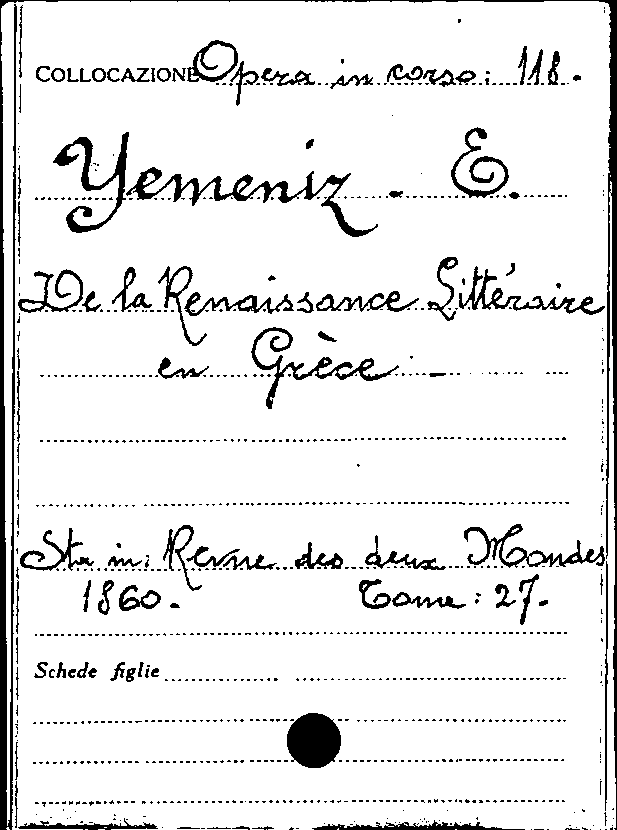 COLLOCAZIONE Opera in corso: 118.
Yemeniz - E.
De la Renaissance Littéraire
en Grèce -
Sta in: Revue des deux Mondes
1860. Tome: 27.
Schede figlie